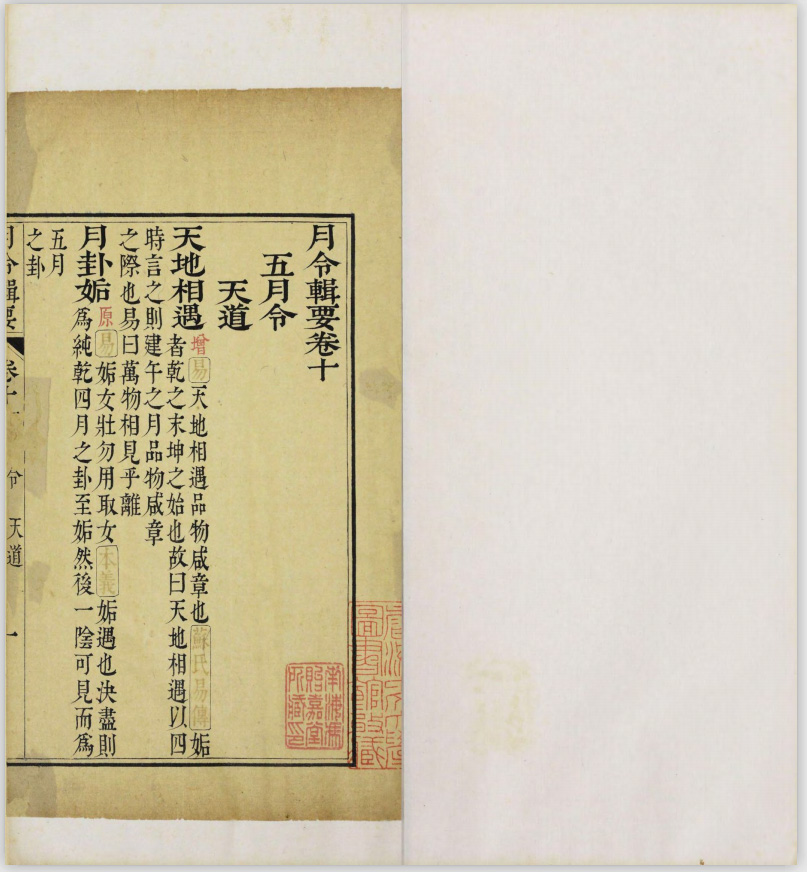 月令輯要卷十
五月令
天道
天地相遇增易天地相遇品物咸章也蘇氏易傳姤
者乾之末坤之始也故曰天地相遇以四
時言之則建午之月品物咸章
之際也易曰萬物相見乎離
月卦姤原易姤女壯勿用取女本義姤遇也決盡則
爲純乾四月之卦至姤然後一陰可見而爲
五月
之卦
月令輯要 卷十 令 天道 一